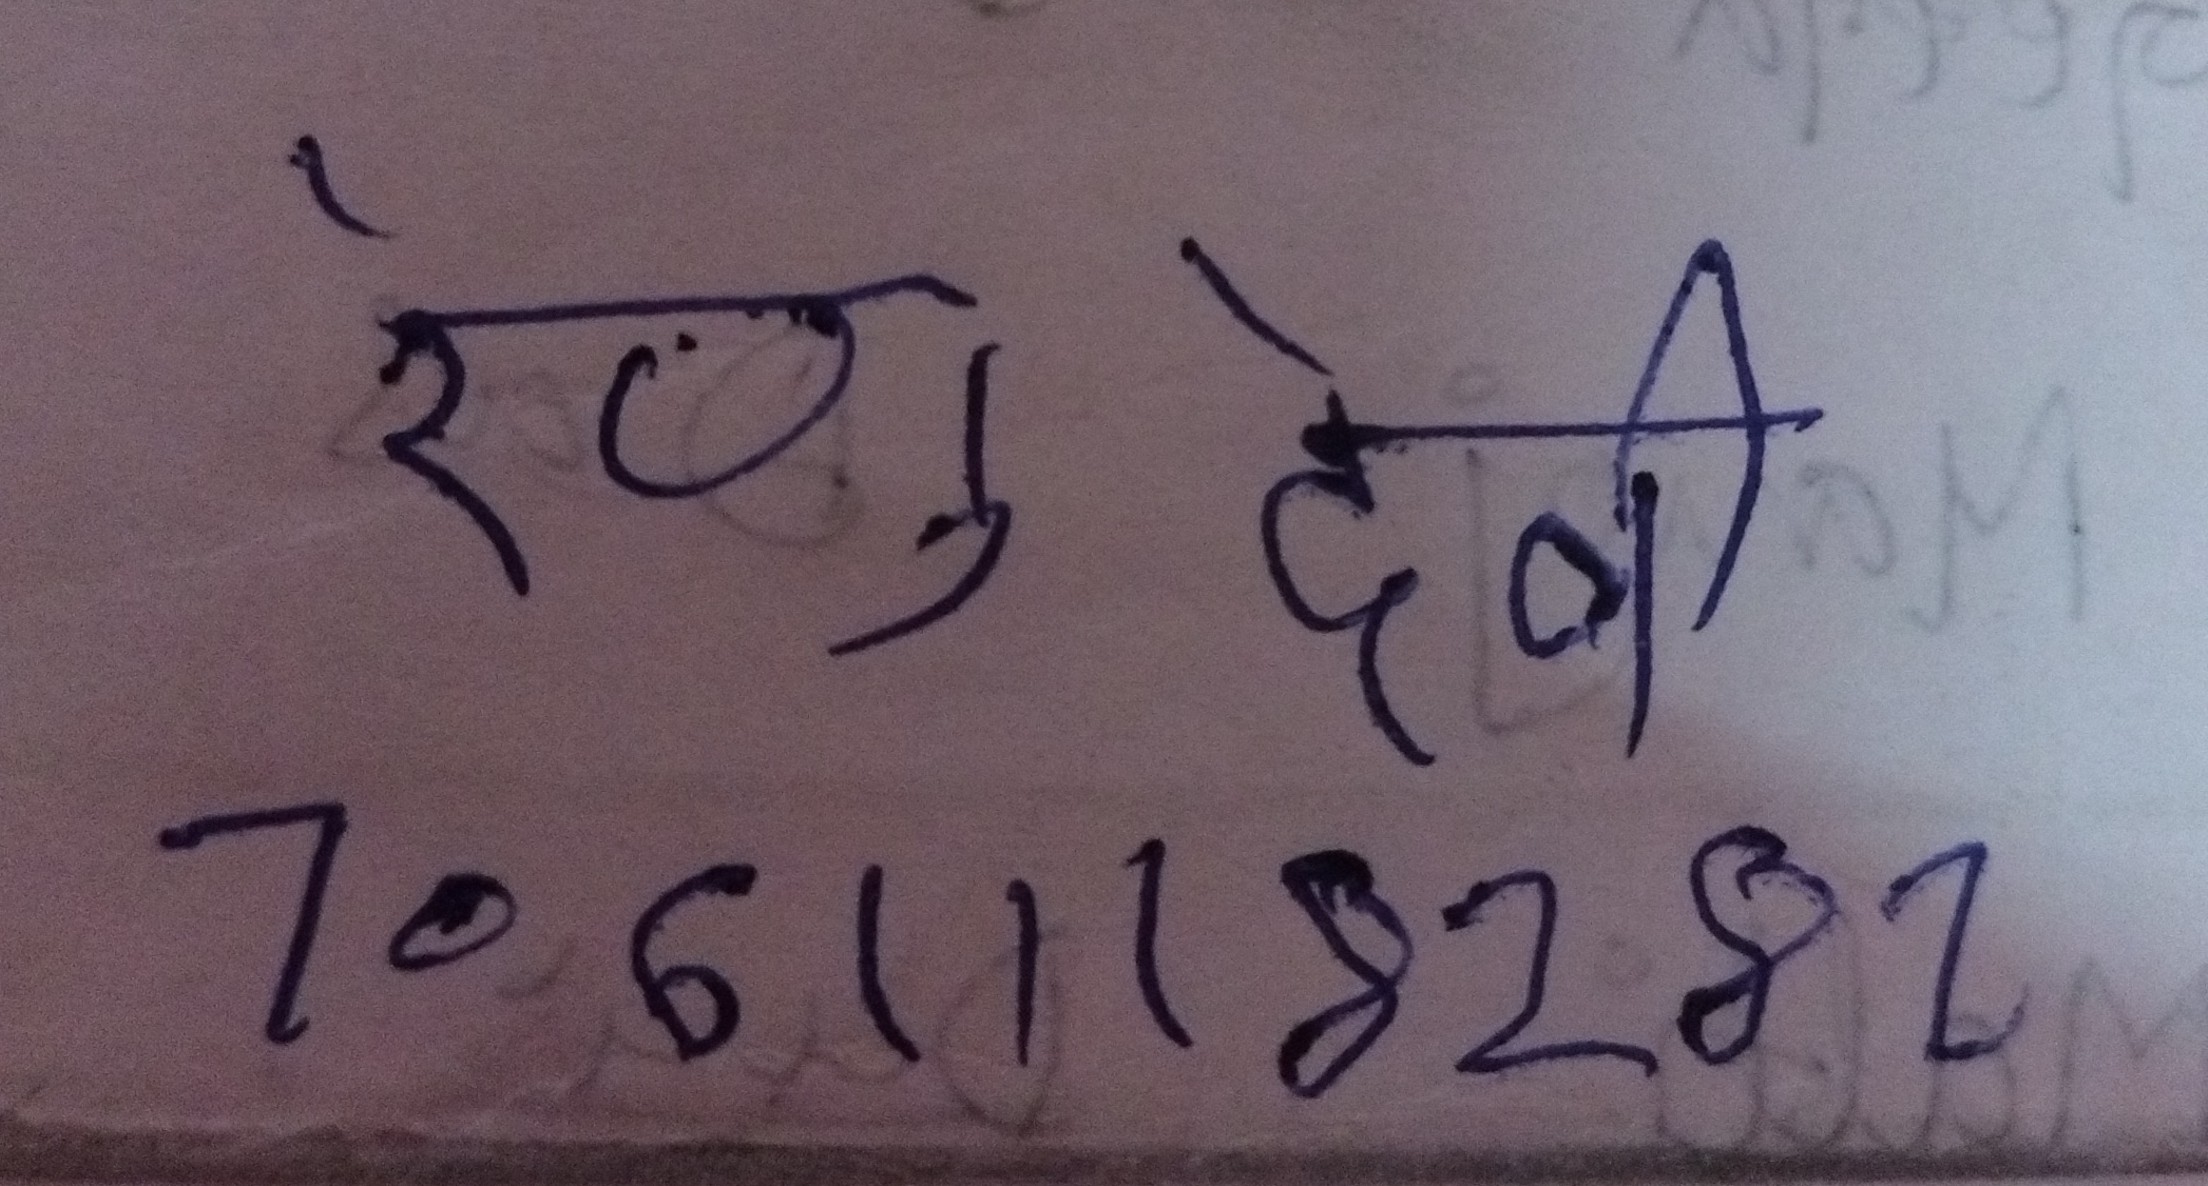 रेणु देवी
7061118282